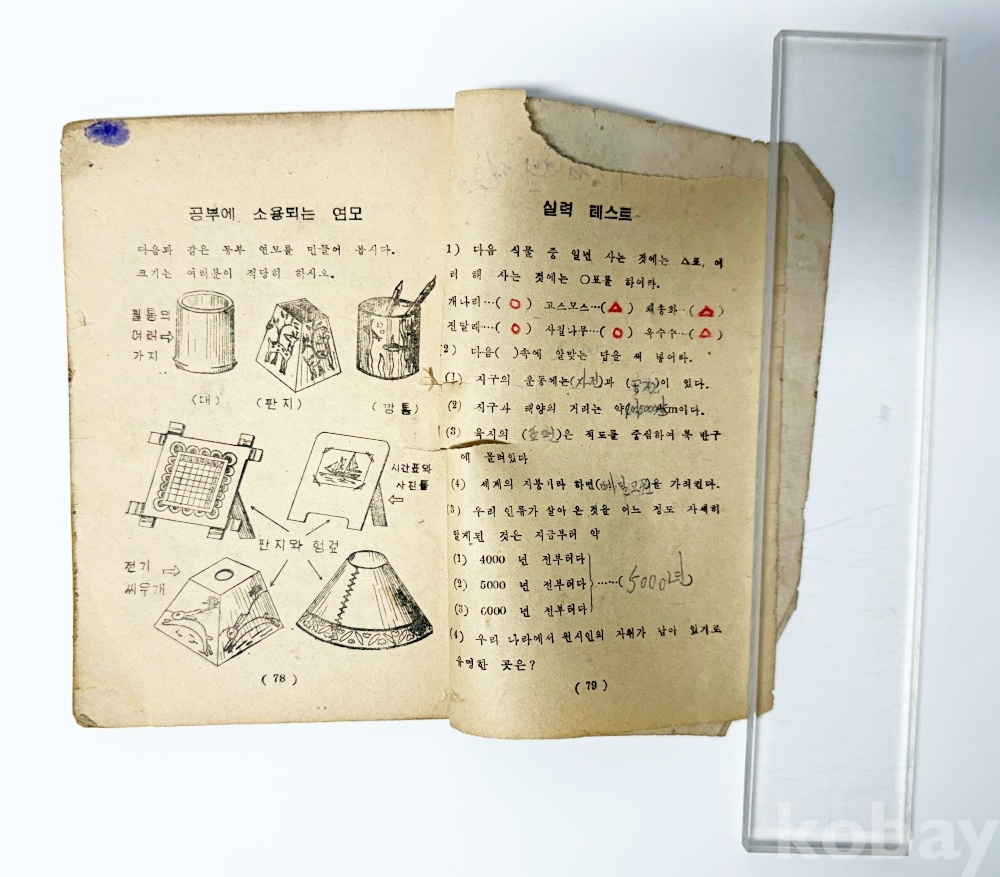 공부에 소용되는 연모
다음과 같은 공부 연모를 만들어 봅시다.
크기는 여러분이 적당히 하시오.
필통의
여러
가지
(대)
(판지)
(깡통)
시간표와
사진틀
판지와 헝겊
전기
씌우개
( 78 )
실력 테스트
1) 다음 식물 중 일년 사는 것에는 △표, 여
러 해 사는 것에는 ○표를 하여라.
개나리…( ○ ) 고스모스…( △ ) 채송화…( △ )
진달래…( ○ ) 사철나무…( ○ ) 옥수수…( △ )
2) 다음( )속에 알맞는 답을 써 넣어라.
(1) 지구의 운동에는(자전)과 (공전)이 있다.
(2) 지구과 태양의 거리는 약 km이다.
(3) 육지의 ( )은 적도를 중심하여 북 반구
에 몰려있다
(4) 세계의 지붕이라 하면( )을 가리킨다.
(3) 우리 인류가 살아 온 것을 어느 정도 자세히
알게 된 것은 지금부터 약
(1) 4000 년 전부터다
(2) 5000 년 전부터다 ……( 5000년 )
(3) 6000 년 전부터다
(4) 우리 나라에서 원시인의 자취가 남아 있기로
유명한 곳은?
( 79 )
kobay